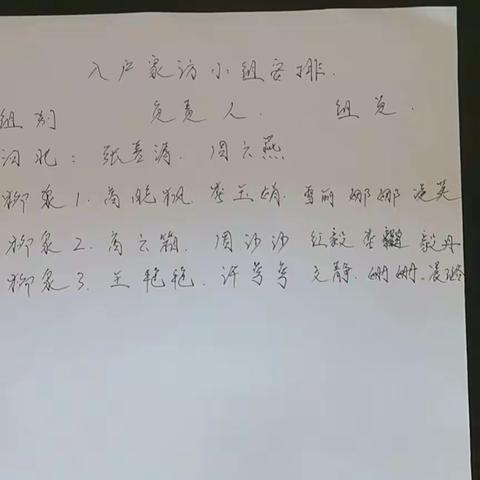 入户家访小组安排.
组别 负责人. 组员.
河北: 张喜涛. 周云燕
柳泉1. 高晓帆. 李玉娟. 雪丽 娜娜 凌英
柳家2. 高云颖. 周沙沙 红毅 李 毅丹
柳家3. 王艳艳. 许芳芳 文静. 姗姗. 晨